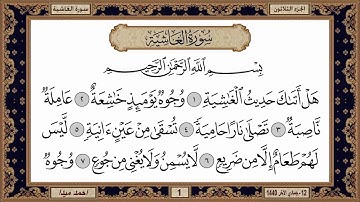 الجزء الثلاثون
سورة الغاشية
سُورَةُ الغَاشِيَةِ
بِسْمِ اللَّهِ الرَّحْمَٰنِ الرَّحِيمِ
هَلْ أَتَىٰكَ حَدِيثُ الْغَٰشِيَةِ ١ وُجُوهٌ يَوْمَئِذٍ خَٰشِعَةٌ ٢ عَامِلَةٌ
نَّاصِبَةٌ ٣ تَصْلَىٰ نَارًا حَامِيَةً ٤ تُسْقَىٰ مِنْ عَيْنٍ ءَانِيَةٍ ٥ لَّيْسَ
لَهُمْ طَعَامٌ إِلَّا مِن ضَرِيعٍ ٦ لَّا يُسْمِنُ وَلَا يُغْنِي مِن جُوعٍ ٧ وُجُوهٌ
12 - جمادى الآخر 1440
1